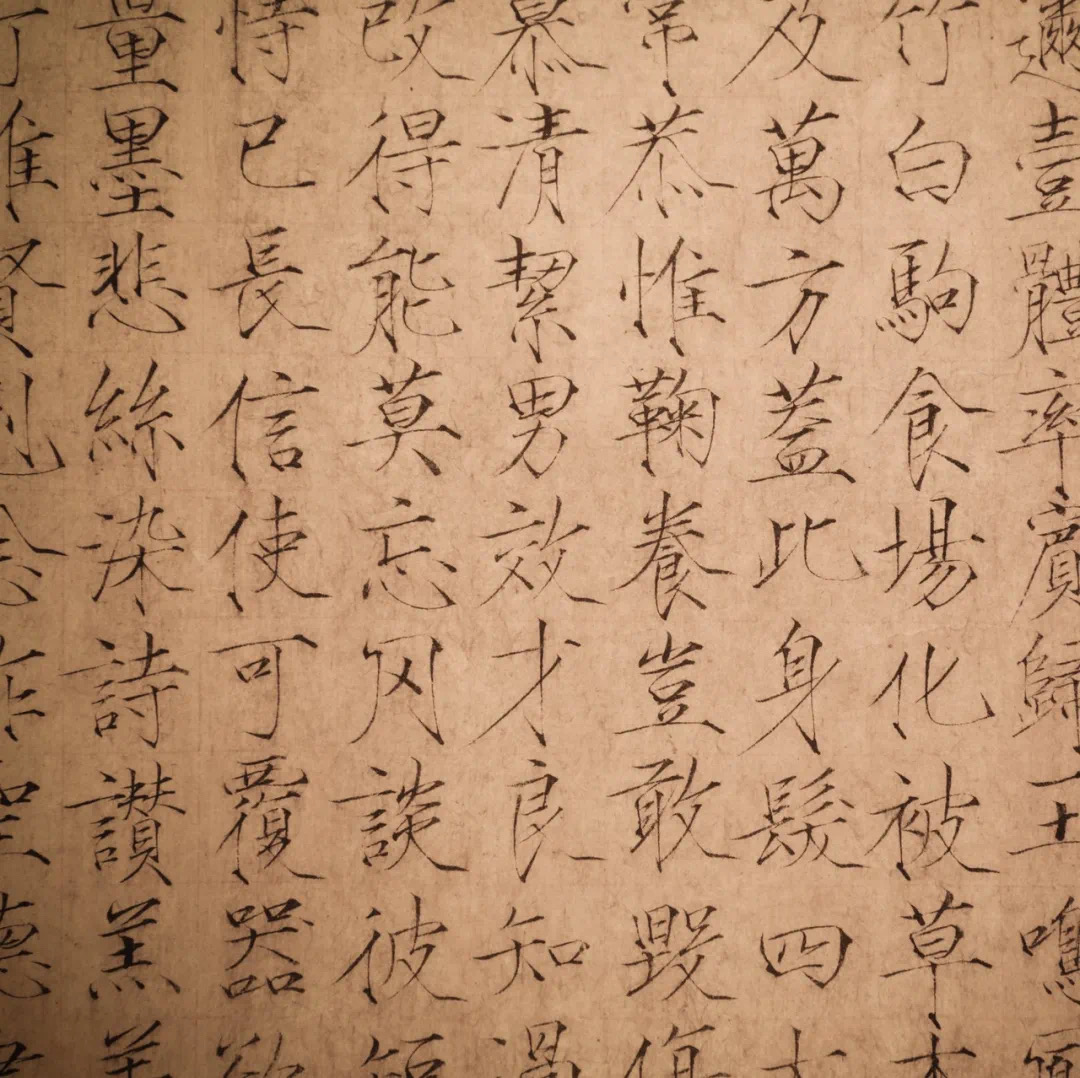 邇壹體率賓歸王鳴鳳
竹白駒食場化被草木
及萬方蓋此身髮四大
常恭惟鞠養豈敢毀傷
慕清絜男效才良知過
改得能莫忘罔談彼短
恃己長信使可覆器欲
量墨悲絲染詩讚羔羊
行維賢剋念作聖德